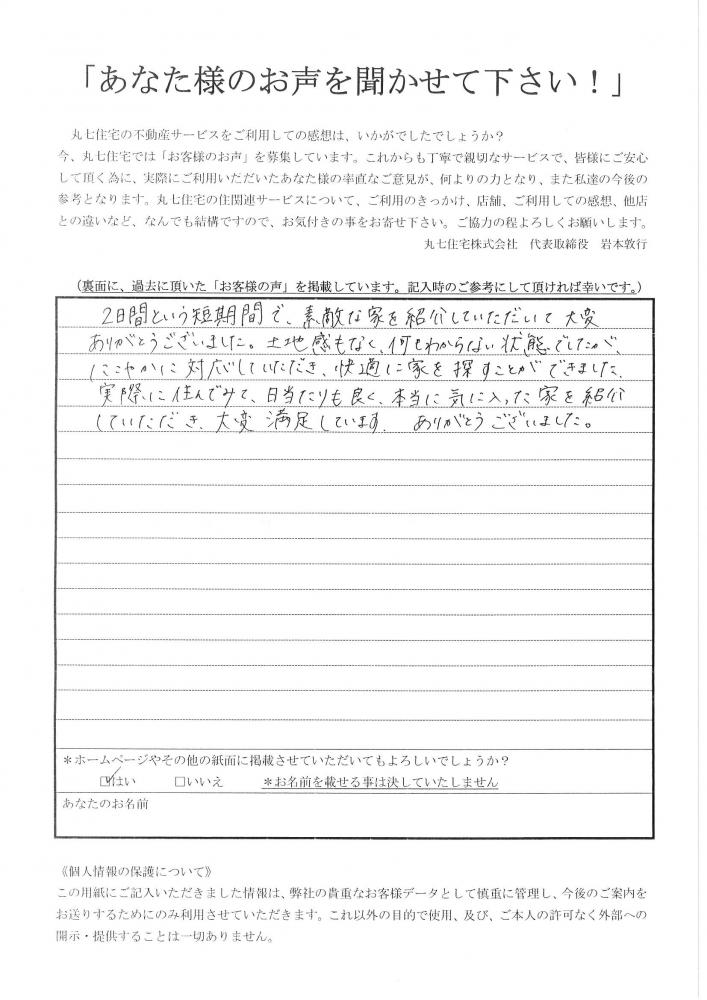 「あなた様のお声を聞かせて下さい！」
丸七住宅の不動産サービスをご利用しての感想は、いかがでしたでしょうか？
今、丸七住宅では「お客様のお声」を募集しています。これからも丁寧で親切なサービスで、皆様にご安心
して頂く為に、実際にご利用いただいたあなた様の率直なご意見が、何よりの力となり、また私達の今後の
参考となります。丸七住宅の住関連サービスについて、ご利用のきっかけ、店舗、ご利用しての感想、他店
との違いなど、なんでも結構ですので、お気付きの事をお寄せ下さい。ご協力の程よろしくお願いします。
丸七住宅株式会社　代表取締役　岩本敦行
（裏面に、過去に頂いた「お客様の声」を掲載しています。記入時のご参考にして頂ければ幸いです。）
2日間という短期間で、素敵な家を紹介していただいて大変
ありがとうございました。土地感もなく、何もわからない状態でしたが、
にこやかに対応していただき、快適に家を探すことができました。
実際に住んでみて、日当たりも良く、本当に気に入った家を紹介
していただき、大変満足しています。ありがとうございました。
＊ホームページやその他の紙面に掲載させていただいてもよろしいでしょうか？
☑はい　□いいえ　＊お名前を載せる事は決していたしません
あなたのお名前
《個人情報の保護について》
この用紙にご記入いただきました情報は、弊社の貴重なお客様データとして慎重に管理し、今後のご案内を
お送りするためにのみ利用させていただきます。これ以外の目的で使用、及び、ご本人の許可なく外部への
開示・提供することは一切ありません。